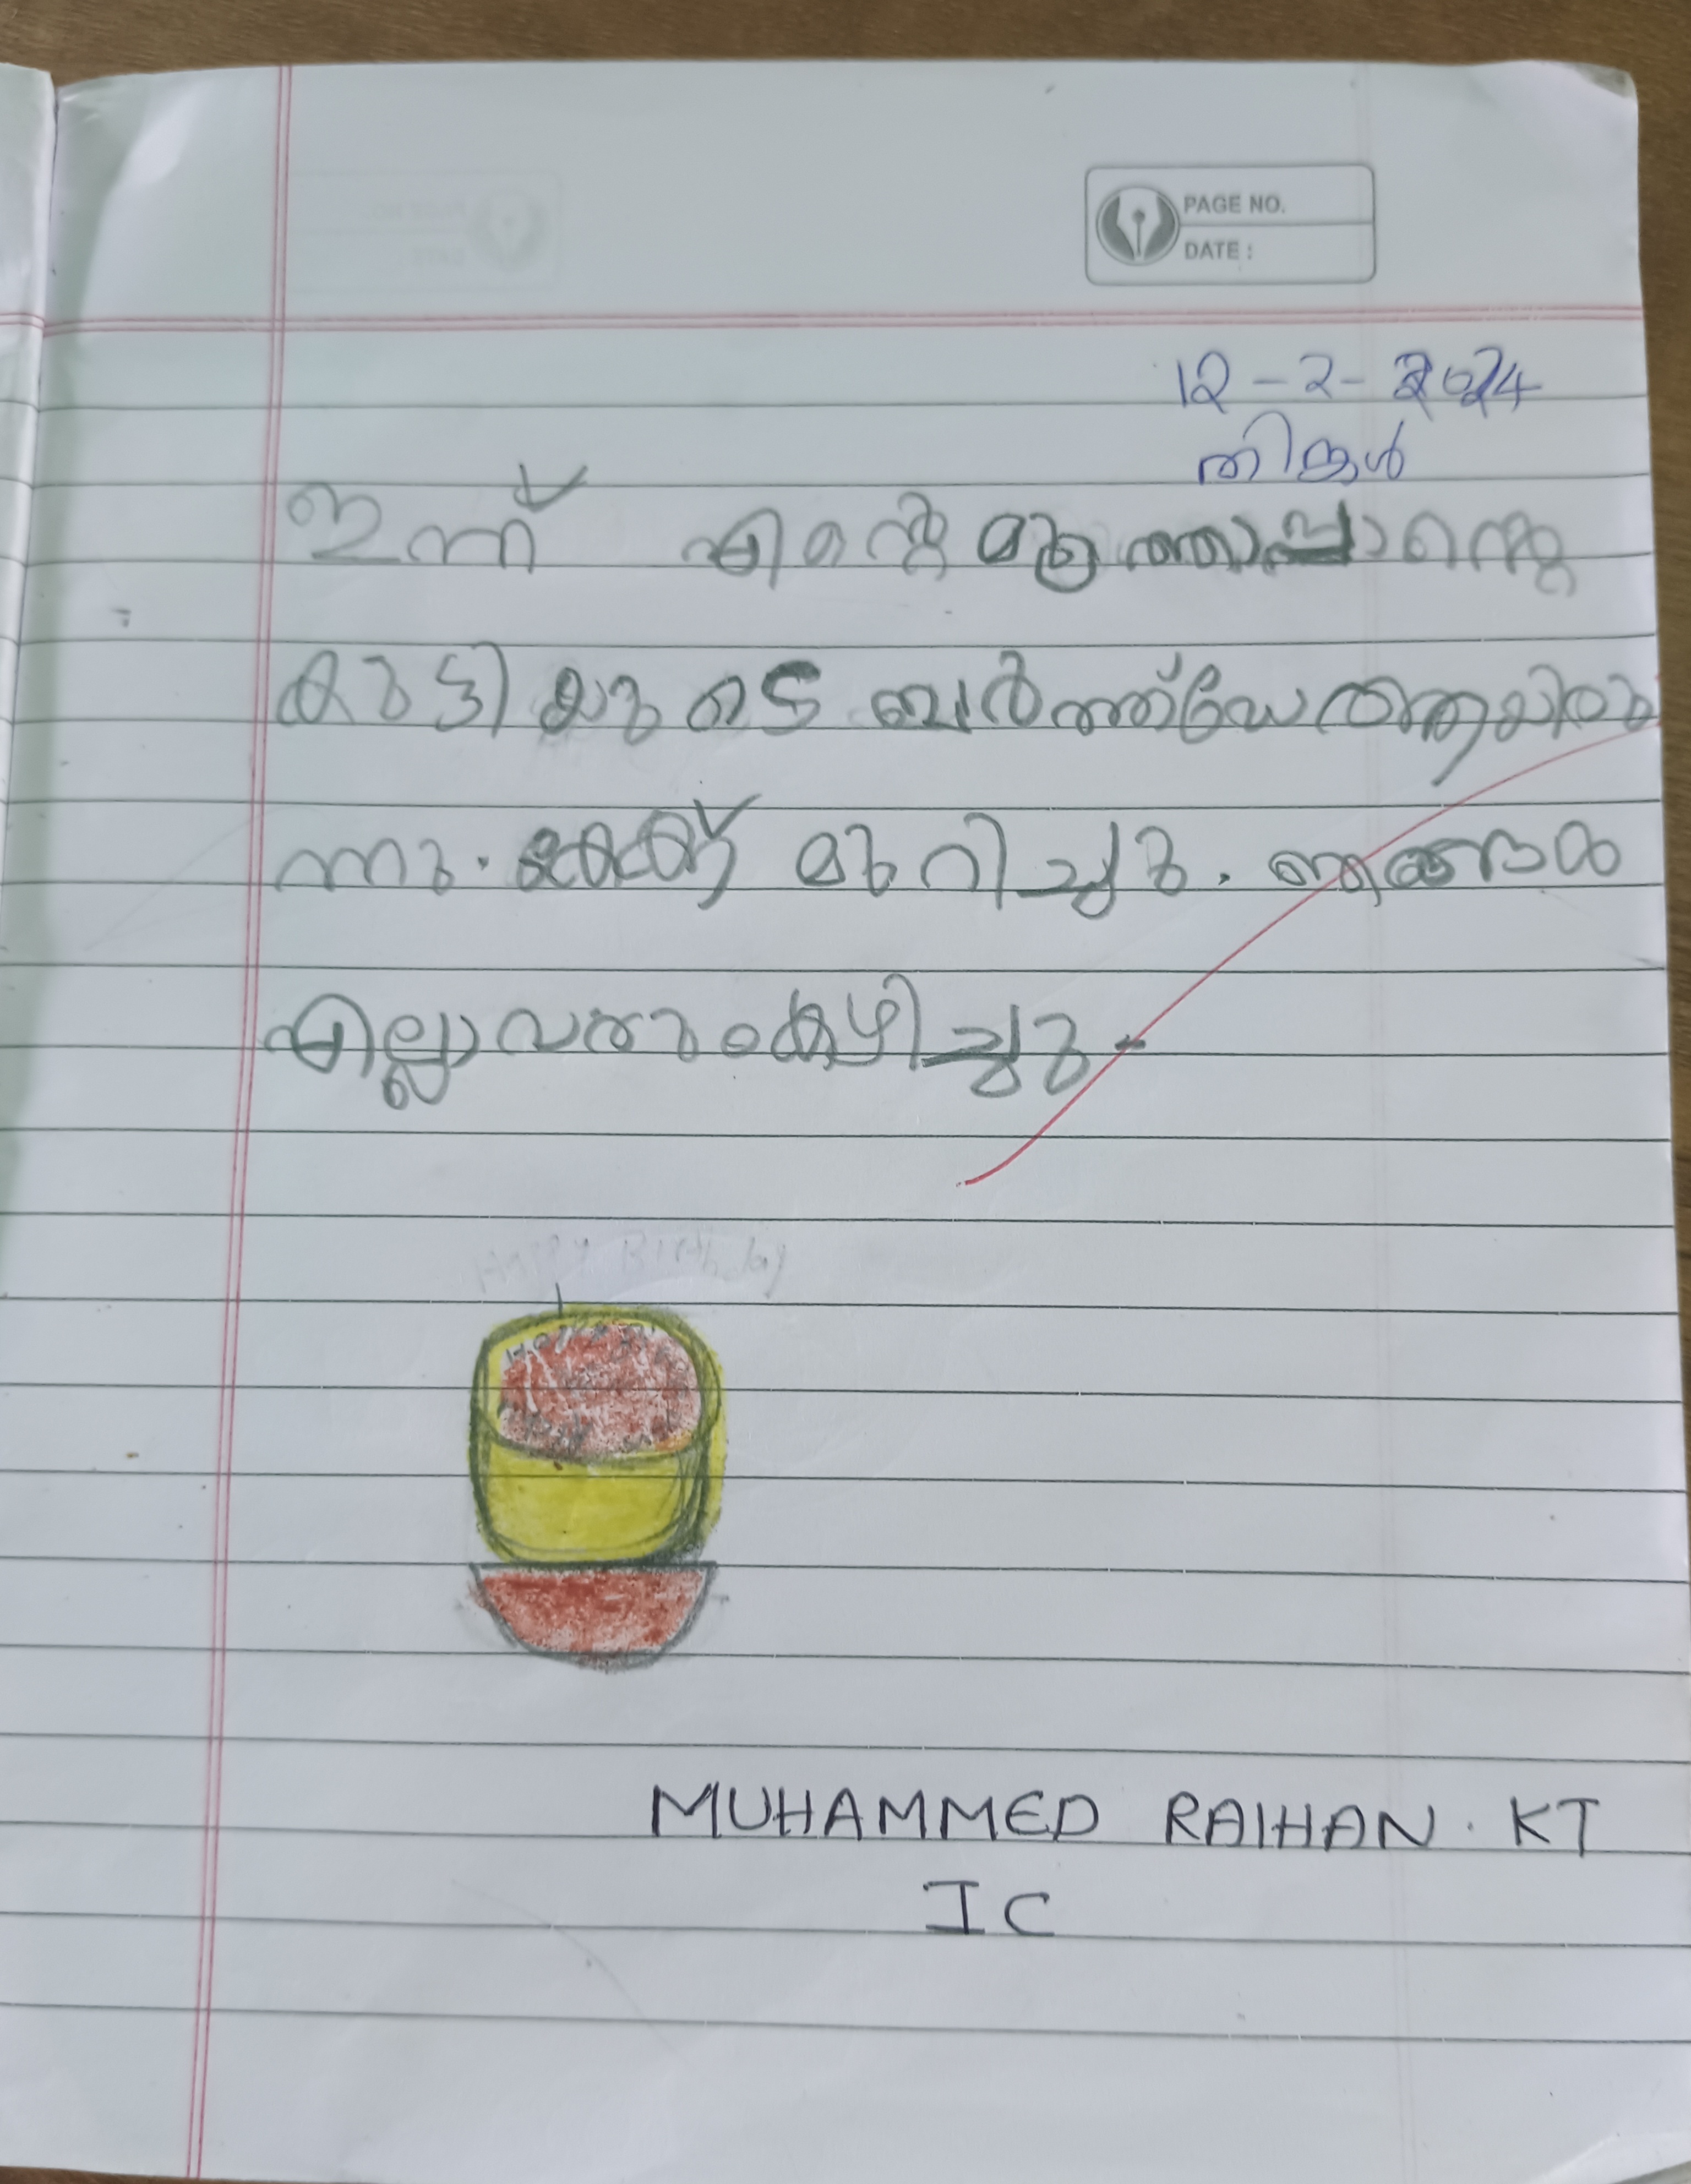 PAGE NO.
DATE :
12-2-2024
തിങ്കൾ
ഇന്ന് എന്റെ മൂത്താപ്പാന്റെ
കുട്ടിയുടെ ബർത്ത്ഡേ ആയിരു
ന്നു. കേക്ക് മുറിച്ചു. ഞങ്ങൾ
എല്ലാവരും കഴിച്ചു.
Happy Birthday
MUHAMMED RAIHAN. KT
I C